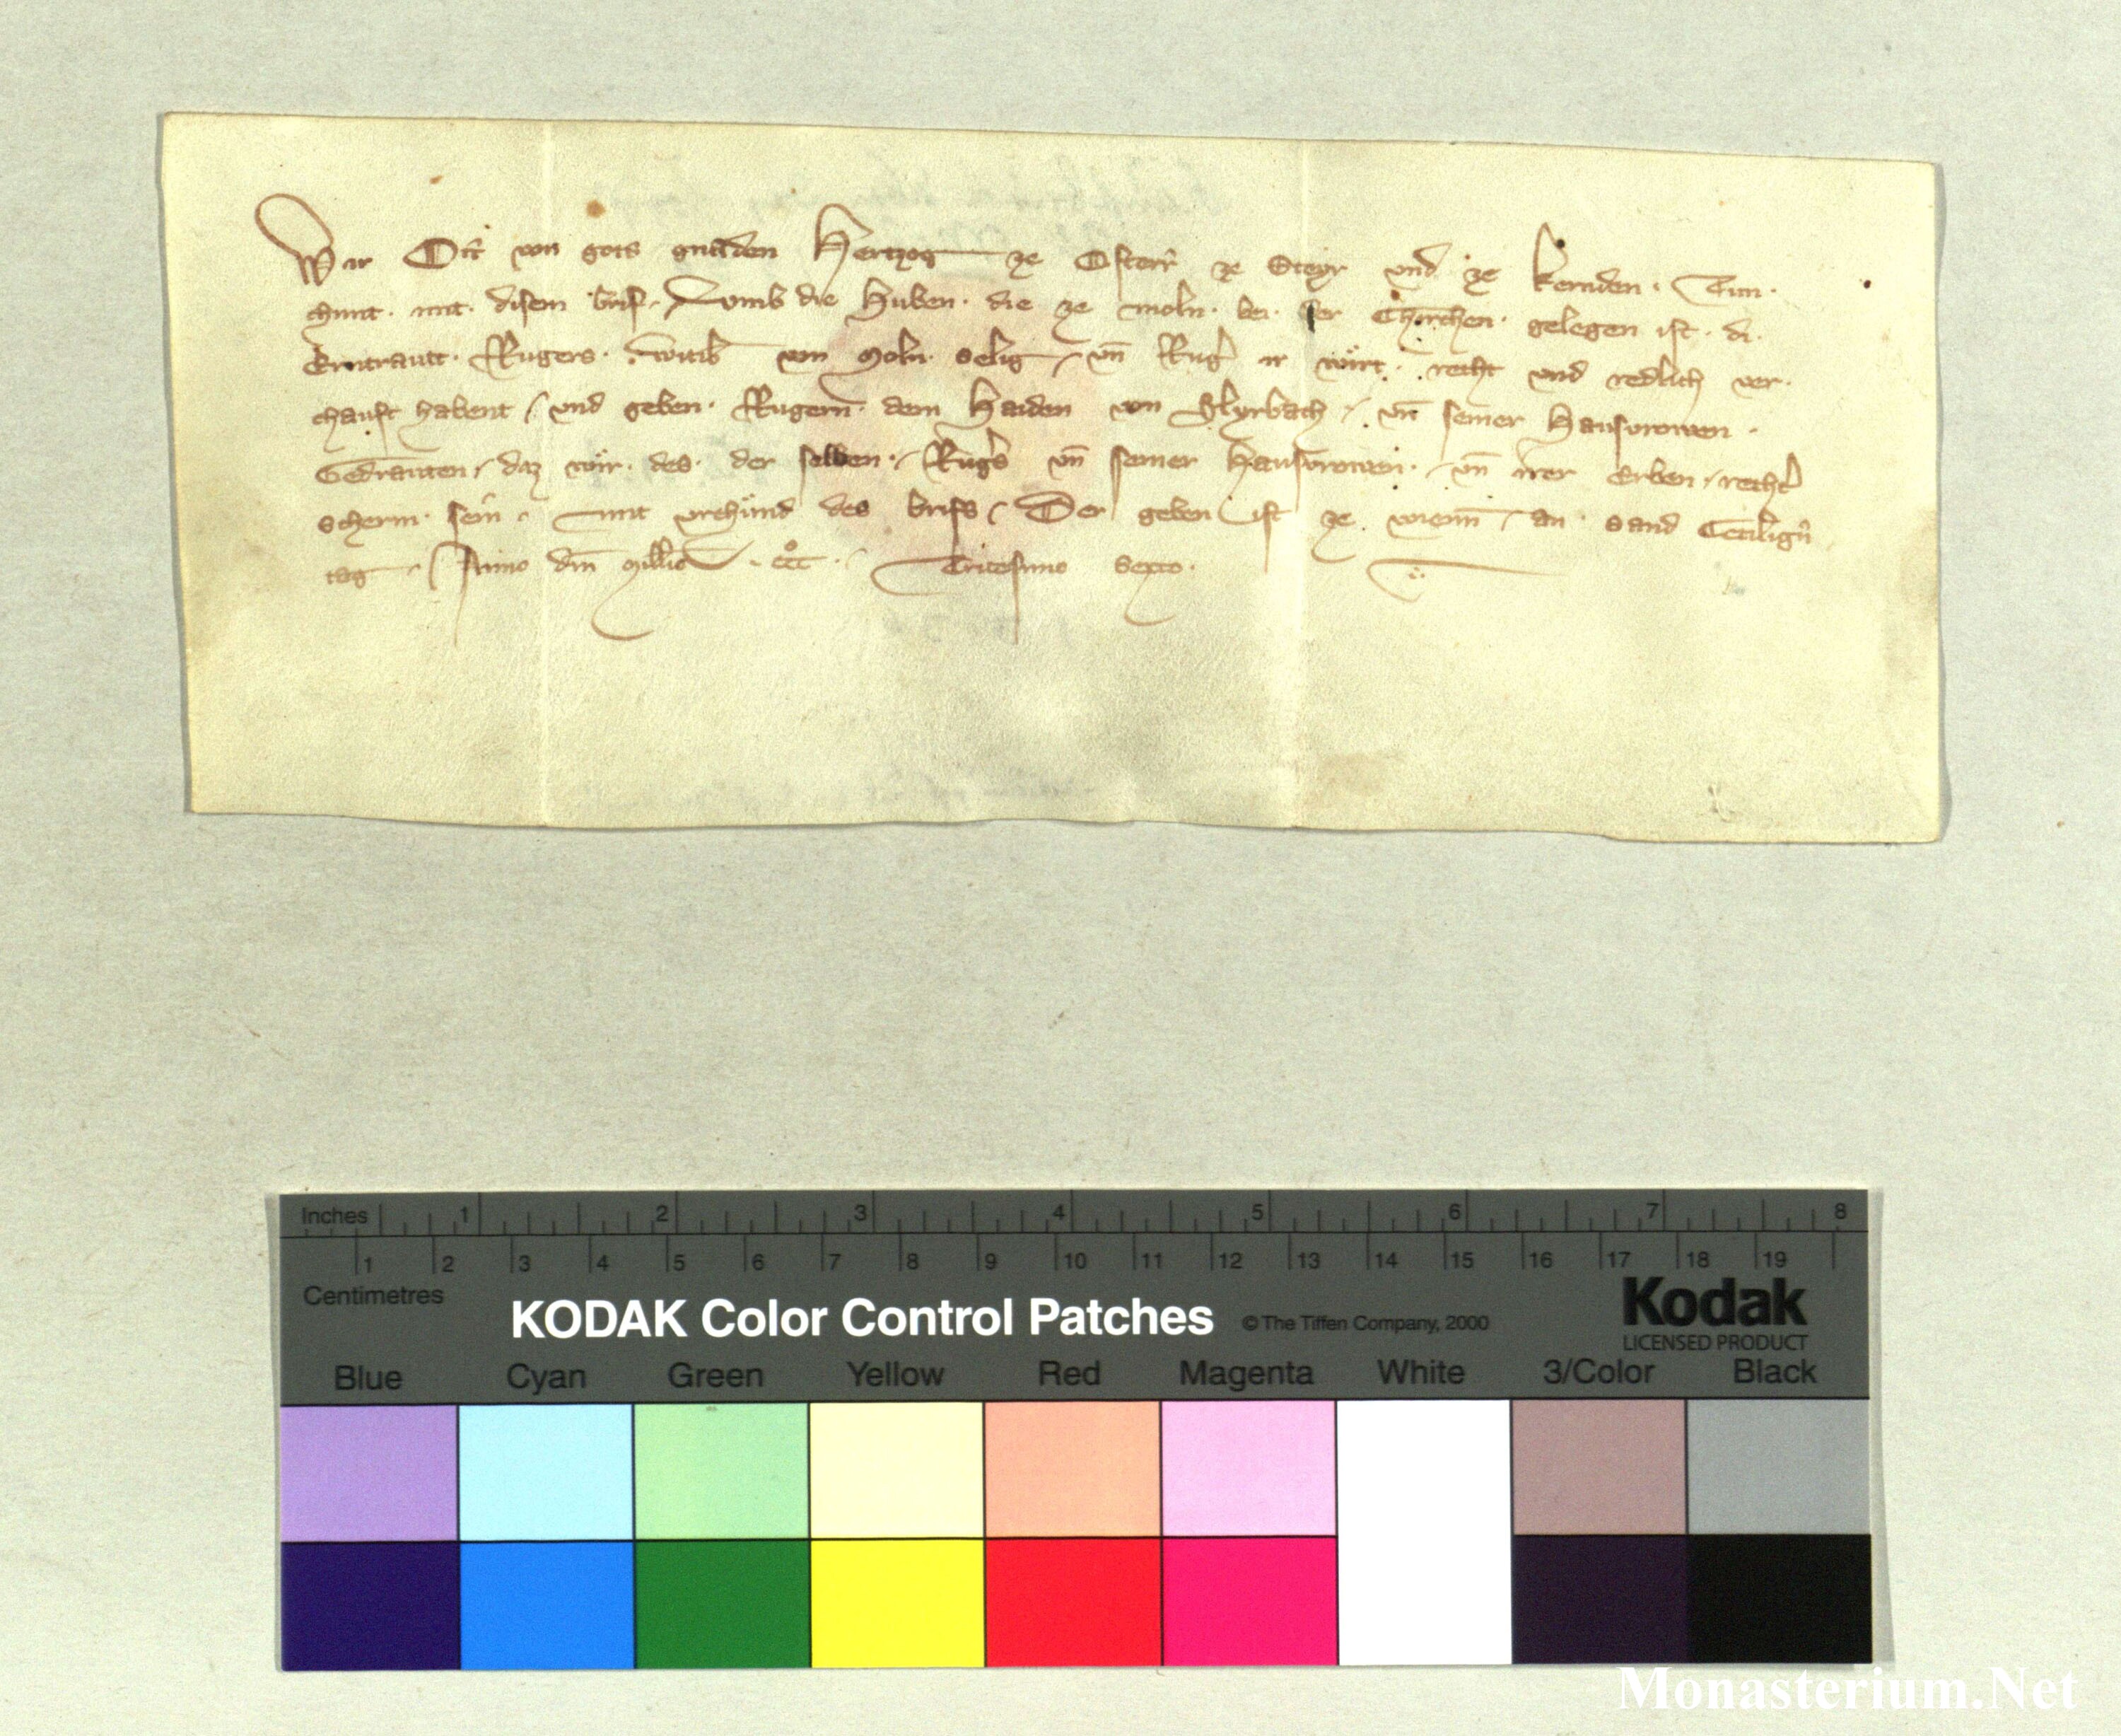 Wir Ott von gots gnaden Hertzog ze Osterr ze Steyr und ze kernden . Tun .
chunt . mit . disem brif . umb die Huben . die ze moln . bei . der Chirchen . gelegen ist . di .
Rugers . witib von Moln . selig / vn̄ Rug ir wirt . recht und redlich ver .
chauft habent / und geben . Rugern . dem Haiden von / vn̄ seiner Hausvrowen .
Gedrauten / daz wir . des . der selben . / Rugs vn̄ seiner Hausvrowen . / vn̄ irer Erben / recht
scherm . sein . mit urchund des brifs / Der geben ist ze wienn / an sand
tag / Anno dm̄ Millio . ccc . / Tricesimo Sexto .
Inches 1 2 3 4 5 6 7 8
1 2 3 4 5 6 7 8 9 10 11 12 13 14 15 16 17 18 19
Centimetres
KODAK Color Control Patches © The Tiffen Company, 2000
Kodak
LICENSED PRODUCT
Blue Cyan Green Yellow Red Magenta White 3/Color Black
Monasterium.Net